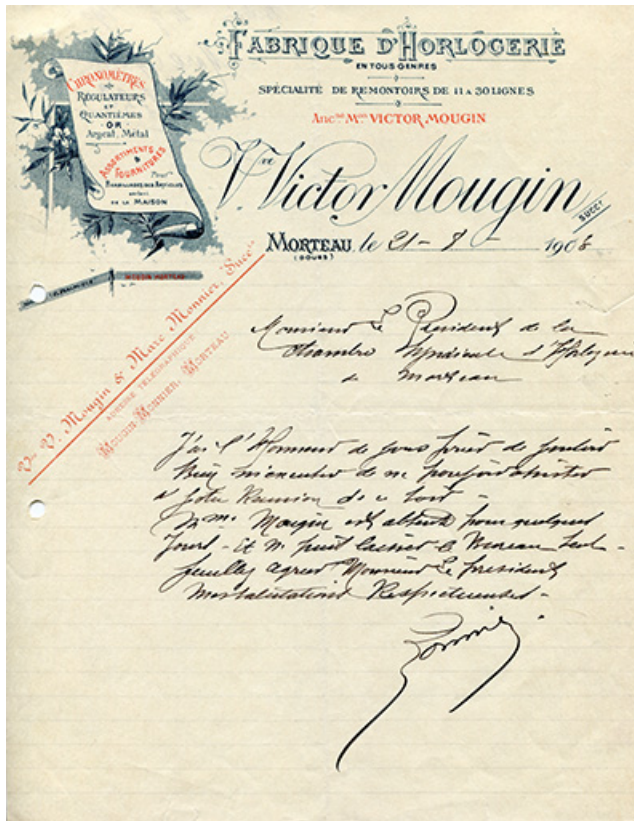 FABRIQUE D'HORLOGERIE
EN TOUS GENRES
SPÉCIALITÉ DE REMONTOIRS DE 11 A 30 LIGNES
Ancne Mon VICTOR MOUGIN
Vve Victor Mougin
SUCCr
MORTEAU, le 21 - 8 - 1908
(DOUBS)
CHRONOMÈTRES
RÉGULATEURS
ET
QUANTIÈMES
OR
Argent, Métal
ASSORTIMENTS
&
FOURNITURES
Pour
DE LA MAISON
MOUGIN MORTEAU
Vve V. Mougin & Marc Monnier, Succrs
ADRESSE TÉLÉGRAPHIQUE
MOUGIN-MONNIER-MORTEAU
Monsieur Le Président de la
Chambre Syndicale d'Horlogerie
à Morteau
J'ai l'Honneur de vous prier de vouloir
Bien m'excuser de ne pouvoir assister
à votre Réunion de ce soir -
Mme Mougin est absente pour quelques
Jours - Et ne puis laisser le Bureau seul -
Veuillez agréer Monsieur Le President
Mes salutations Respectueuses -
Monnier